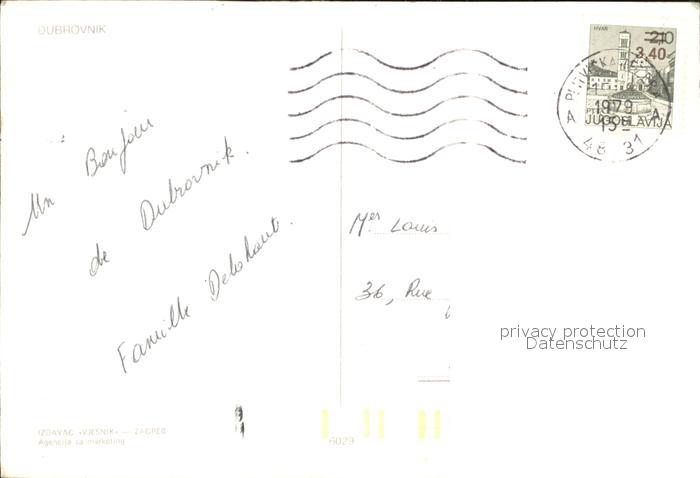 DUBROVNIK
HVAR
2,10
3.40
JUGOSLAVIJA
1979
15
A A
48 31
Un Bonjour
de Dubrovnik.
Famille Delahaut.
Mer Louis
36, Rue
privacy protection
Datenschutz
IZDAVAČ «VJESNIK» — ZAGREB
Agencija za marketing
6029